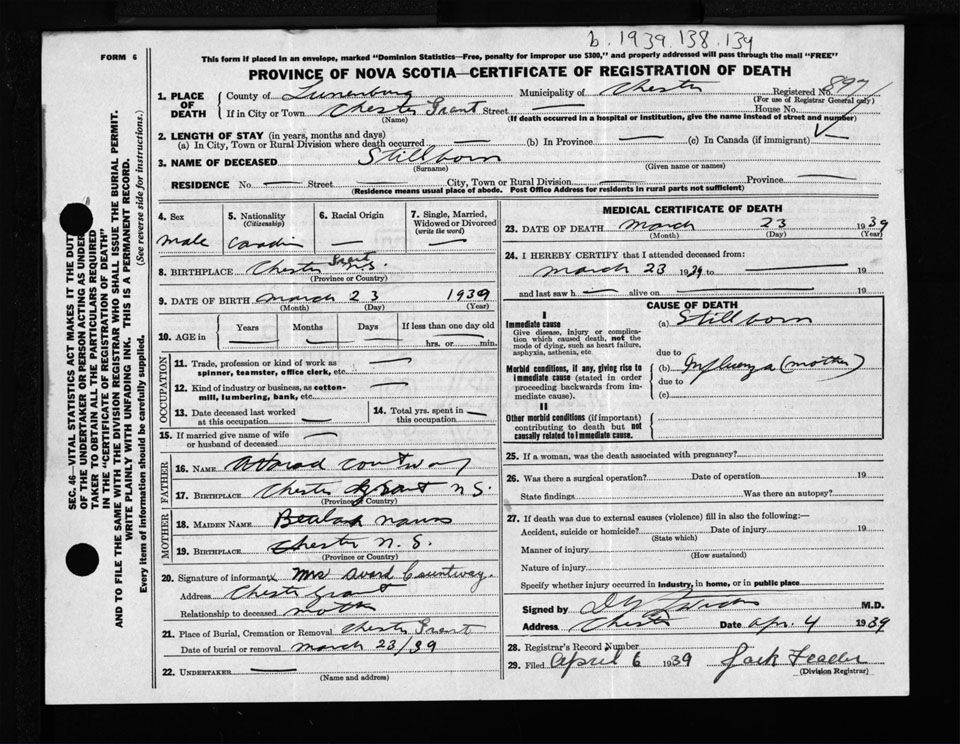 b. 1939.138.139
FORM 6
This form if placed in an envelope, marked "Dominion Statistics—Free, penalty for improper use $300," and properly addressed will pass through the mail "FREE"
PROVINCE OF NOVA SCOTIA—CERTIFICATE OF REGISTRATION OF DEATH
SEC. 46—VITAL STATISTICS ACT MAKES IT THE DUTY
OF THE UNDERTAKER OR PERSON ACTING AS UNDER-
TAKER TO OBTAIN ALL THE PARTICULARS REQUIRED
IN THE "CERTIFICATE OF REGISTRATION OF DEATH"
AND TO FILE THE SAME WITH THE DIVISION REGISTRAR WHO SHALL ISSUE THE BURIAL PERMIT.
WRITE PLAINLY WITH UNFADING INK. THIS IS A PERMANENT RECORD.
Every item of information should be carefully supplied. (See reverse side for instructions.)
1. PLACE OF DEATH
County of Lunenburg Municipality of Chester Registered No. 897
(For use of Registrar General only)
If in City or Town Chester Grant Street — House No.
(Name) (If death occurred in a hospital or institution, give the name instead of street and number)
2. LENGTH OF STAY (in years, months and days)
(a) In City, Town or Rural Division where death occurred — (b) In Province — (c) In Canada (if immigrant)
3. NAME OF DECEASED Stillborn
(Surname) (Given name or names)
RESIDENCE No. — Street — City, Town or Rural Division — Province —
(Residence means usual place of abode. Post Office Address for residents in rural parts not sufficient)
4. Sex
male
5. Nationality
(Citizenship)
6. Racial Origin
—
7. Single, Married, Widowed or Divorced
(write the word)
—
8. BIRTHPLACE Chester Grant N.S.
(Province or Country)
9. DATE OF BIRTH March 23 1939
(Month) (Day) (Year)
10. AGE in Years Months Days If less than one day old
— — — hrs. or — min.
OCCUPATION
11. Trade, profession or kind of work as spinner, teamster, office clerk, etc. —
12. Kind of industry or business, as cotton-mill, lumbering, bank, etc. —
13. Date deceased last worked at this occupation — 14. Total yrs. spent in this occupation —
15. If married give name of wife or husband of deceased —
FATHER
16. NAME Countway
17. BIRTHPLACE Chester Grant N S
(Province or Country)
MOTHER
18. MAIDEN NAME Beulah
19. BIRTHPLACE Chester N. S.
(Province or Country)
20. Signature of informant Mrs Avard Countway.
Address Chester Grant
Relationship to deceased mother
21. Place of Burial, Cremation or Removal Chester Grant
Date of burial or removal March 23/39
22. UNDERTAKER —
(Name and address)
MEDICAL CERTIFICATE OF DEATH
23. DATE OF DEATH March 23 1939
(Month) (Day) (Year)
24. I HEREBY CERTIFY that I attended deceased from:
March 23 1939 to — 19
and last saw h — alive on — 19
CAUSE OF DEATH
I
Immediate cause
Give disease, injury or complication which caused death, not the mode of dying, such as heart failure, asphyxia, asthenia, etc
(a) Stillborn
due to
Morbid conditions, if any, giving rise to immediate cause (stated in order proceeding backwards from immediate cause).
(b) Influenza (mother)
due to
(c)
II
Other morbid conditions (if important) contributing to death but not causally related to immediate cause.
25. If a woman, was the death associated with pregnancy?
26. Was there a surgical operation? Date of operation 19
State findings Was there an autopsy?
27. If death was due to external causes (violence) fill in also the following:—
Accident, suicide or homicide? Date of injury 19
(State which)
Manner of injury
(How sustained)
Nature of injury
Specify whether injury occurred in industry, in home, or in public place
Signed by M.D.
Address Chester Date Apr. 4 1939
28. Registrar's Record Number
29. Filed April 6 1939 Jack
(Division Registrar)